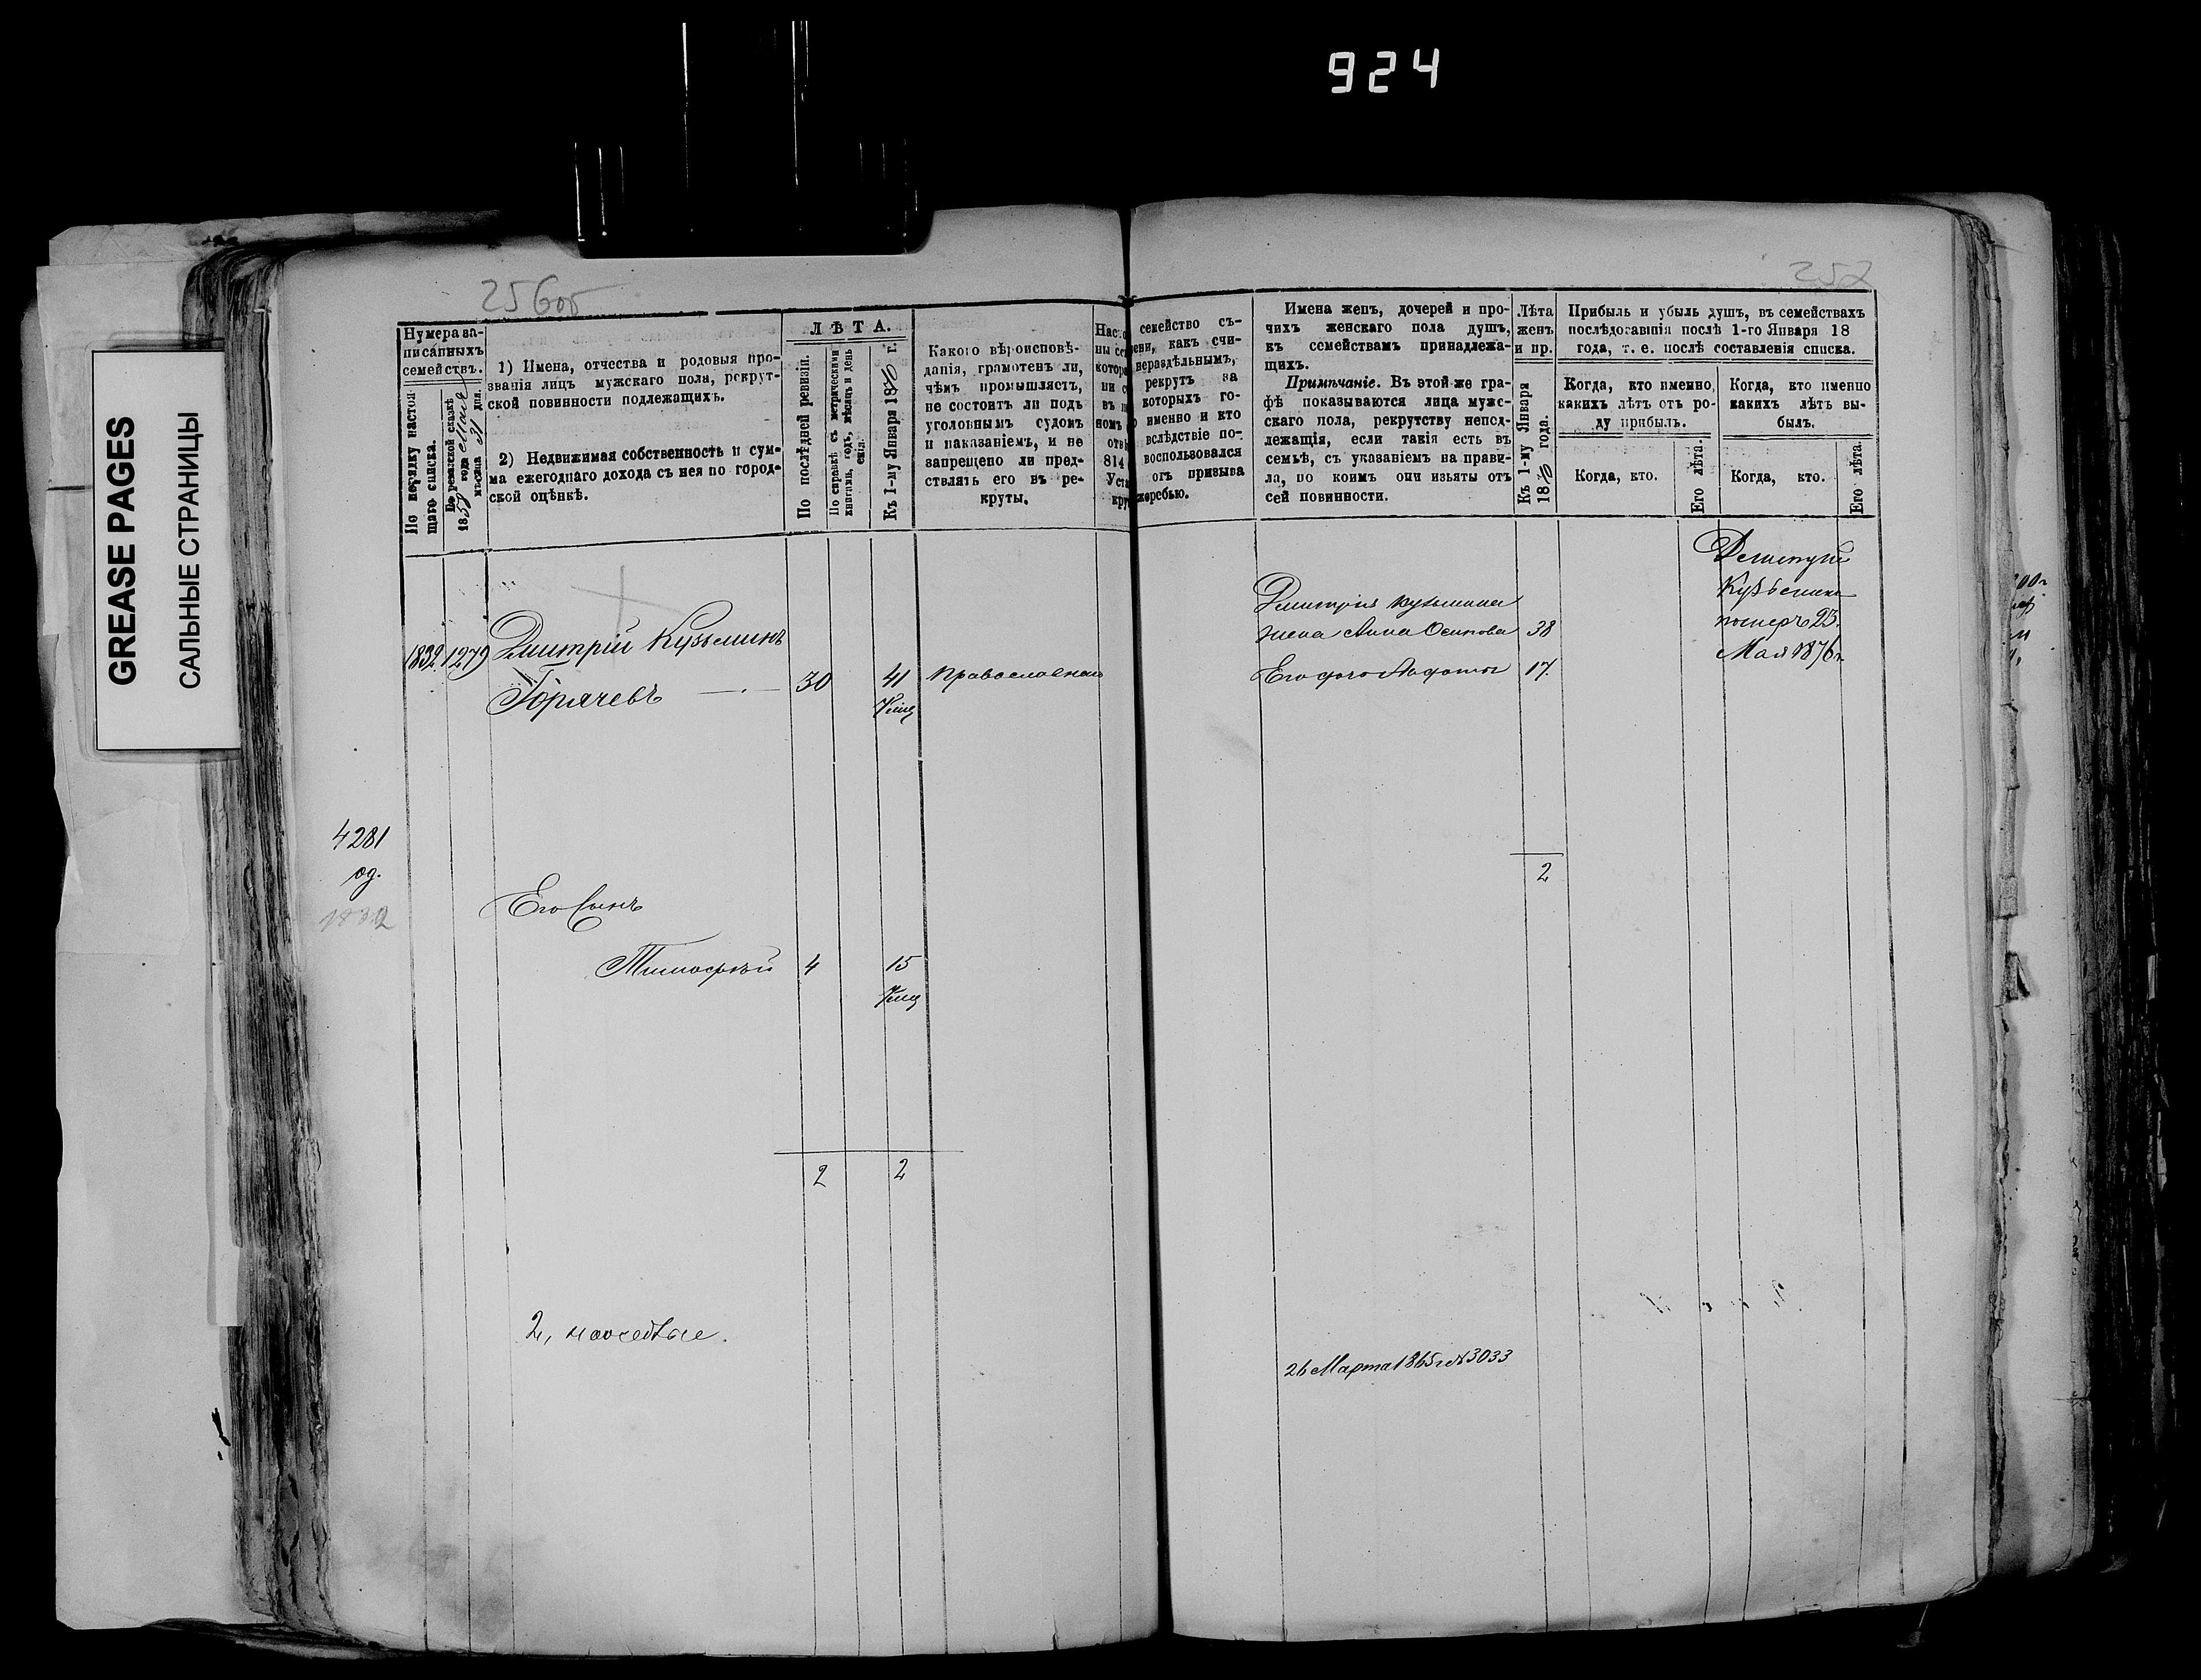 924
GREASE PAGES
САЛЬНЫЕ СТРАНИЦЫ
256об
257
Нумера за-
писанныхъ
семействъ.
По порядку настоя-
щаго списка.
По ревизской сказкѣ
1858 года
мѣсяца 31 дня.
1) Имена, отчества и родовыя про-
званія лицъ мужскаго пола, рекрут-
ской повинности подлежащихъ.
2) Недвижимая собственность и сум-
ма ежегоднаго дохода съ нея по город-
ской оцѣнкѣ.
ЛѢТА.
По послѣдней ревизіи.
По справкѣ съ метрическими
книгами, годъ, мѣсяцъ и день
Къ 1-му Января 18 г.
Какого вѣроисповѣ-
данія, грамотенъ ли,
чѣмъ промышляетъ,
не состоитъ ли подъ
уголовнымъ судомъ
и наказаніемъ, и не
запрещено ли пред-
ставлять его въ ре-
круты.
семейство съ-
какъ счи-
нераздѣльнымъ,
рекрутъ за
которыхъ го-
именно и кто
вслѣдствіе по-
воспользовался
отъ призыва
жеребью.
Имена женъ, дочерей и про-
чихъ женскаго пола душъ,
къ семействамъ принадлежа-
щихъ.
Примѣчаніе. Въ этой же гра-
фѣ показываются лица муж-
скаго пола, рекрутству непод-
лежащія, если такія есть въ
семьѣ, съ указаніемъ на прави-
ла, по коимъ они изъяты отъ
сей повинности.
Лѣта
женъ
и пр.
Къ 1-му Января
18 года.
Прибыль и убыль душъ, въ семействахъ
послѣдовавшія послѣ 1-го Января 18
года, т. е. послѣ составленія списка.
Когда, кто именно,
какихъ лѣтъ отъ ро-
ду прибылъ.
Когда, кто именно
какихъ лѣтъ вы-
былъ.
Когда, кто.
Его лѣта.
Когда, кто.
Его лѣта.
1832 1279 Дмитрій Кузьминъ
Горячевъ 30 41 Православнаго
Дмитрія Кузьмина
жена Анна Осипова 38
Его дочь 17
Дмитрій
Кузьминъ
померъ 23
Мая 1876 г.
4281
од.
1832
2
Его Сынъ
Тимофей 4 15
2 2
2,
26 Марта 1865 г. № 3033